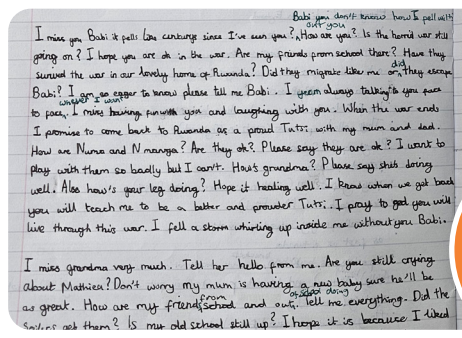 Babi you don't know how I pell with
out you
I miss you Babi it pells like centurys since I've seen you? How are you? Is the horrid war still
going on? I hope you are ok in the war. Are my friends from school there? Have they
survived the war in our lovely home of Rwanda? Did they migrate like me or did they escape
Babi? I am so eager to know please tell me Babi. I yearn always talking to you face
to face, whever I want I miss having fun with you and laughing with you. When the war ends
I promise to come back to Rwanda as a proud Tutsi with my mum and dad.
How are Numa and N manga? Are they ok? Please say they are ok? I want to
play with them so badly but I can't. How's grandma? Please say shes doing
well. Also how's your leg doing? Hope it healing well. I know when we get back
you will teach me to be a better and prouder Tutsi. I pray to god you will
live through this war. I fell a storm whirling up inside me without you Babi.
I miss grandma very much. Tell her hello from me. Are you still crying
about Mathieu? Don't worry my mum is having a new baby sure he'll be
as great. How are my friends from school and out of school doing, Tell me everything. Did the
get them? Is my old school still up? I hope it is because I liked